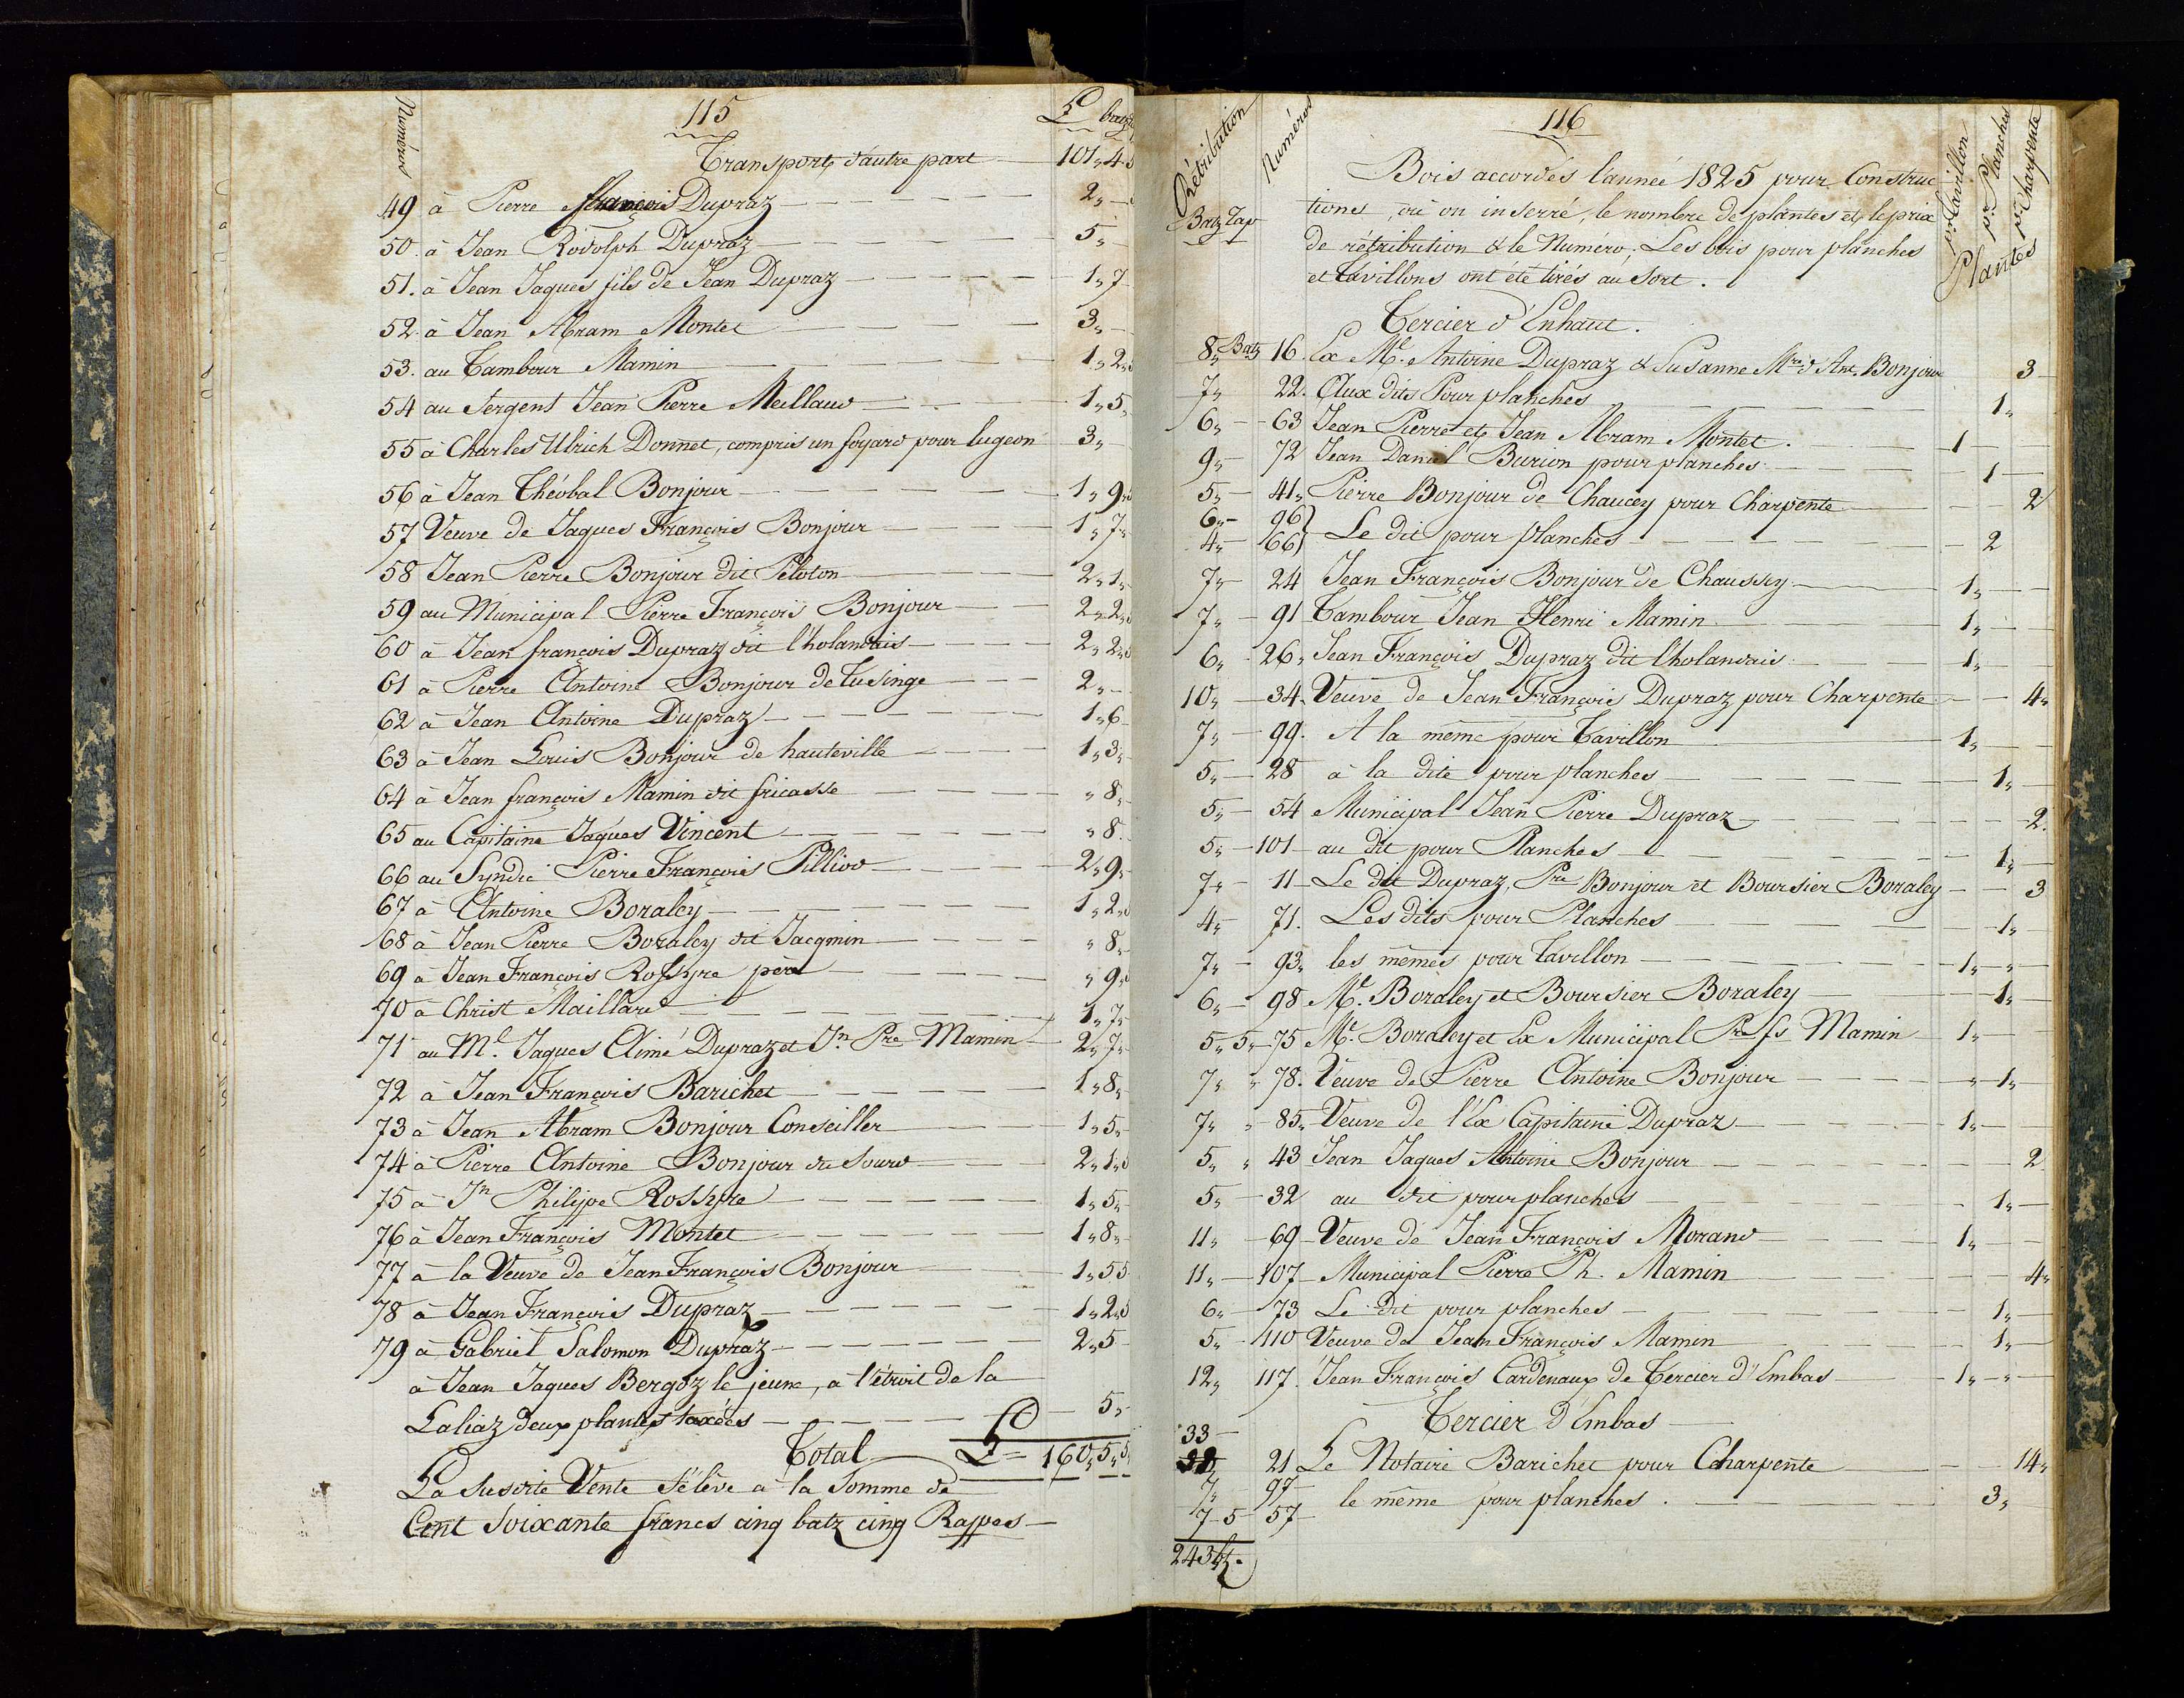 115
Numéros
L batz
Transport d'autre part 101,, 4
49 à Pierre François Dupraz 2,,
50. à Jean Rodolph Dupraz 5,,
51. à Jean Jaques fils de Jean Dupraz 1,, 7
52. à Jean Abram Montet 3,,
53. au Tambour Mamin 1,, 2,,
54 au Sergent Jean Pierre Meillaud 1,, 5,,
55 à Charles Ulrich Donnet, compris un foyard pour lugeon 3,,
56 à Jean Théobal Bonjour 1,, 9,,
57 Veuve de Jaques François Bonjour 1,, 7,,
58 Jean Pierre Bonjour dit Peloton 2,, 1,,
59 au Municipal Pierre François Bonjour 2,, 2,,
60 à Jean françois Dupraz dit l'holandais 2,, 2,,
61 à Pierre Antoine Bonjour de Lusinge 2,,
62 à Jean Antoine Dupraz 1,, 6
63 à Jean Louis Bonjour de hauteville 1,, 3,,
64 à Jean françois Mamin dit fricasse ,, 8,,
65 au Capitaine Jaques Vincent ,, 8
66 au Syndic Pierre François Pilliod 2,, 9,,
67 à Antoine Boraley 1,, 2,,
68 à Jean Pierre Boraley dit Jacqmin ,, 8,,
69 à Jean François Rossyre père ,, 9,,
70 à Christ Maillard 1,, 7,,
71 au Ml. Jaques Aimé Dupraz et Jn Pre Mamin 2,, 7,,
72 à Jean François Barichet 1,, 8,,
73 à Jean Abram Bonjour Conseiller 1,, 5,,
74 à Pierre Antoine Bonjour du Sourd 2,, 1,,
75 à Jn Philipe Rossyre 1,, 5,,
76 à Jean François Montet 1,, 8,,
77 à la Veuve de Jean François Bonjour 1,, 5 5
78 à Jean François Dupraz 1,, 2,, 5
79 à Gabriel Salomon Dupraz 2,, 5
à Jean Jaques Bergoz le jeune, à l'étroit de la
Laliaz deux plantes taxées 5,,
Total L = 160,, 5,, 5
La Susdite Vente s'élève à la Somme de
Cent Soixante francs cinq batz cinq Rappes
116
Rétribution
Numéros
Batz Rap
pr tavillon
pr Planches
pr Charpente
Plantes
Bois accordés l'année 1825 pour Construc
tions, où on inserré, le nombre de plantes et le prix
de rétribution & le Numéro; Les bois pour planches
et tavillons ont été tirés au Sort.
Tercier d'Enhaut.
8,, Batz 16 Ex Ml. Antoine Dupraz & Susanne Mre d'Ant. Bonjour 3
7,, 22. Aux dits Pour planches 1,,
6,, 63 Jean Pierre et Jean Abram Montet. 1
9,, 72 Jean Daniel Burion pour planches 1
5,, 41,, Pierre Bonjour de Chaucey pour Charpente 2
6,, 96
4,, 66 } Le dit pour planches 2
7,, 24 Jean François Bonjour de Chaussey 1,,
7,, 91 Tambour Jean Henri Mamin 1,,
6,, 26,, Jean François Dupraz dit l'holandais 1,,
10,, 34. Veuve de Jean François Dupraz pour Charpente 4,,
7,, 99. A la même pour Tavillon 1,,
5,, 28 à la dite pour planches 1,,
5,, 54 Municipal Jean Pierre Dupraz 2.
5,, 101 au dit pour Planches 1,,
7,, 11 Le dit Dupraz, Pre Bonjour et Boursier Boraley 3
4,, 71. Les dits pour Planches 1,,
7,, 93,, les mêmes pour tavillon 1,, ,,
6,, 98 Ml. Boraley et Boursier Boraley 1,,
5,, 5,, 75 Ml. Boraley et Ex Municipal Pre fs Mamin 1,,
7,, ,, 78. Veuve de Pierre Antoine Bonjour ,, 1,,
7,, ,, 85,, Veuve de l'Ex Capitaine Dupraz 1,,
5,, ,, 43 Jean Jaques Antoine Bonjour 2
5,, 32 au dit pour planches 1,,
11,, 69 Veuve de Jean François Morand 1,,
11,, 107 Municipal Pierre Ph. Mamin 4,,
6,, 73 Le dit pour planches 1,,
5,, 110 Veuve de Jean François Mamin 1,,
12,, 117. Jean François Cardenaux de Tercier d'Embas 1,, ,,
Tercier d'Embas
33
21 Le Notaire Barichet pour Charpente 14,,
7,, 97
7 5 57 le même pour planches. 3,,
243 btz.